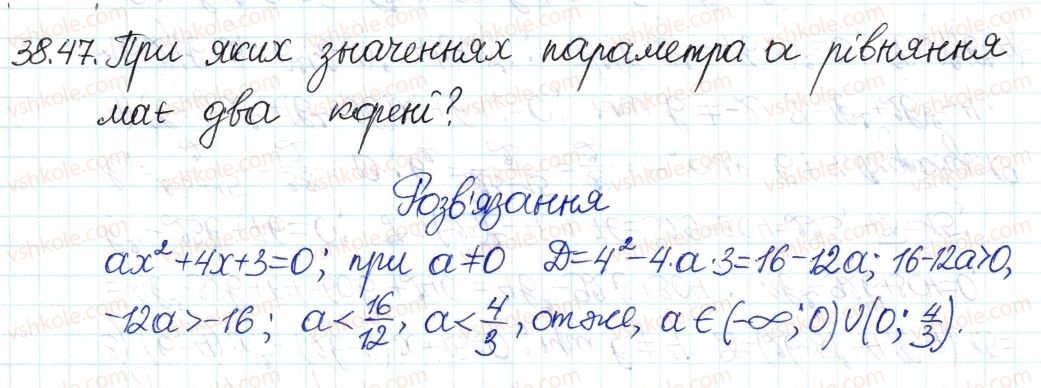 38.47. При яких значеннях параметра a рівняння
має два корені?
Розв'язання
ax²+4x+3=0; при a≠0 D=4²-4·a·3=16-12a; 16-12a>0,
-12a>-16; a<16/12, a<4/3, отже, a∈(-∞;0)∪(0;4/3).